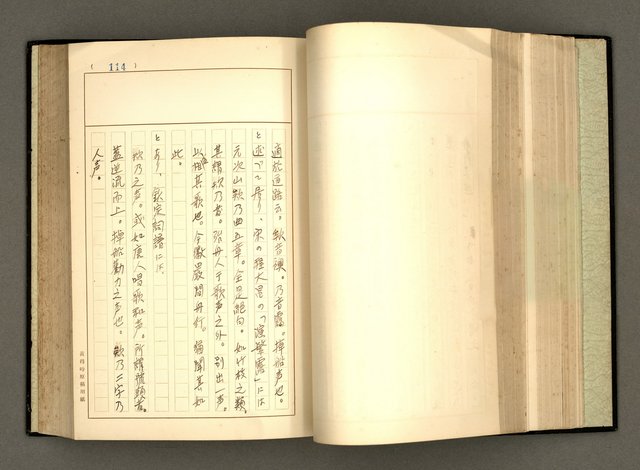 114
適於道路云。欸音襖。乃音靄。棹船声也。
と述べて居り、宋の程大昌の「演繁露」には
元次山欸乃曲五章。全是絶句。如竹枝之類。
其謂欸乃者。殆舟人于歌声之外。別出一声。
以相其歌也。今徽嚴間舟行。猶聞其如
此。
とあり、欽定詞譜には、
欸乃之声。或如唐人唱歌和声。所謂號頭者。
蓋逆流而上。棹船勸力之声也。欸乃二字乃
人声。